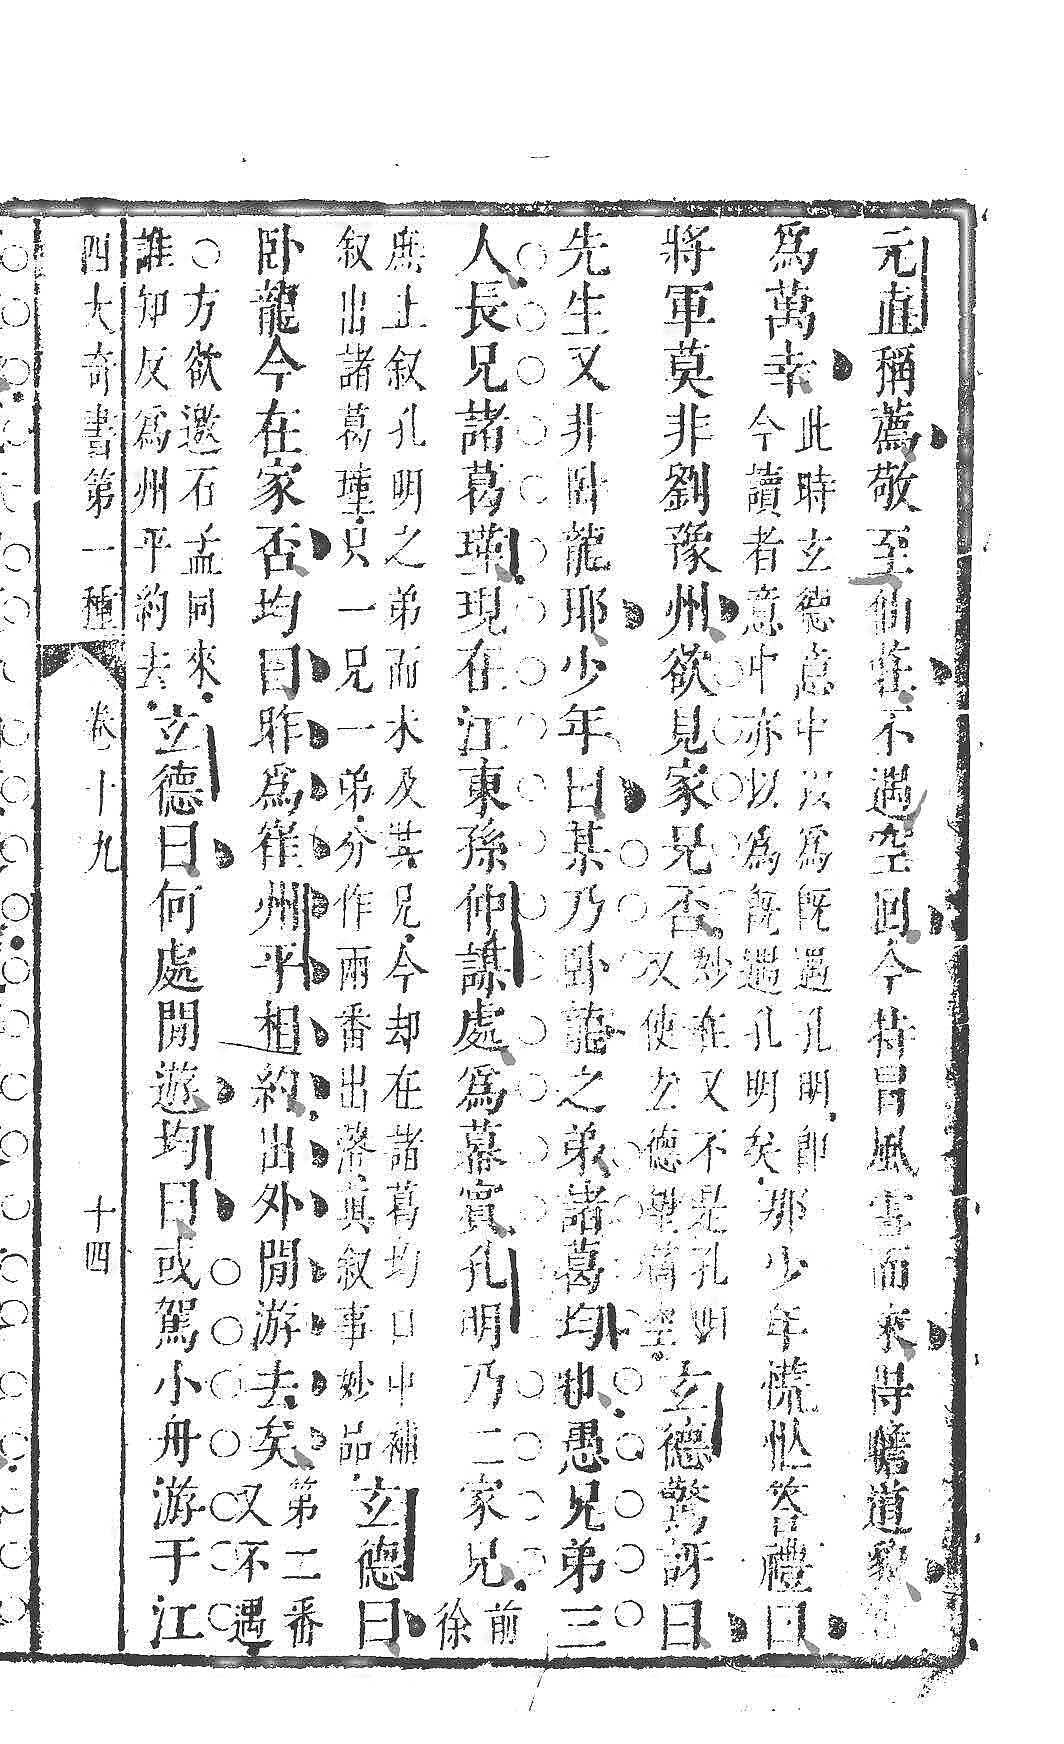 元直稱薦敬至仙莊不遇空回今特冒風雪而來得瞻道貌實
爲萬幸此時玄德意中以爲旣遇孔明卽今讀者意中亦以爲旣遇孔明矣那少年慌忙答禮曰
將軍莫非劉豫州欲見家兄否妙在又不是孔明又使玄德驚訝曰
先生又非卧龍耶少年曰某乃卧龍之弟諸葛均也愚兄弟三
人長兄諸葛瑾現在江東孫仲謀處爲幕賓孔明乃二家兄前徐
庶止叙孔明之弟而未及其兄今却在諸葛均口中補叙出諸葛瑾只一兄一弟分作兩番出落眞叙事妙品玄德曰
卧龍今在家否均曰昨爲崔州平相約出外閒游去矣第二番又不遇
○方欲邀石孟同來誰知反爲州平約去玄德曰何處閒遊均曰或駕小舟游于江
四大奇書第一種 卷十九 十四